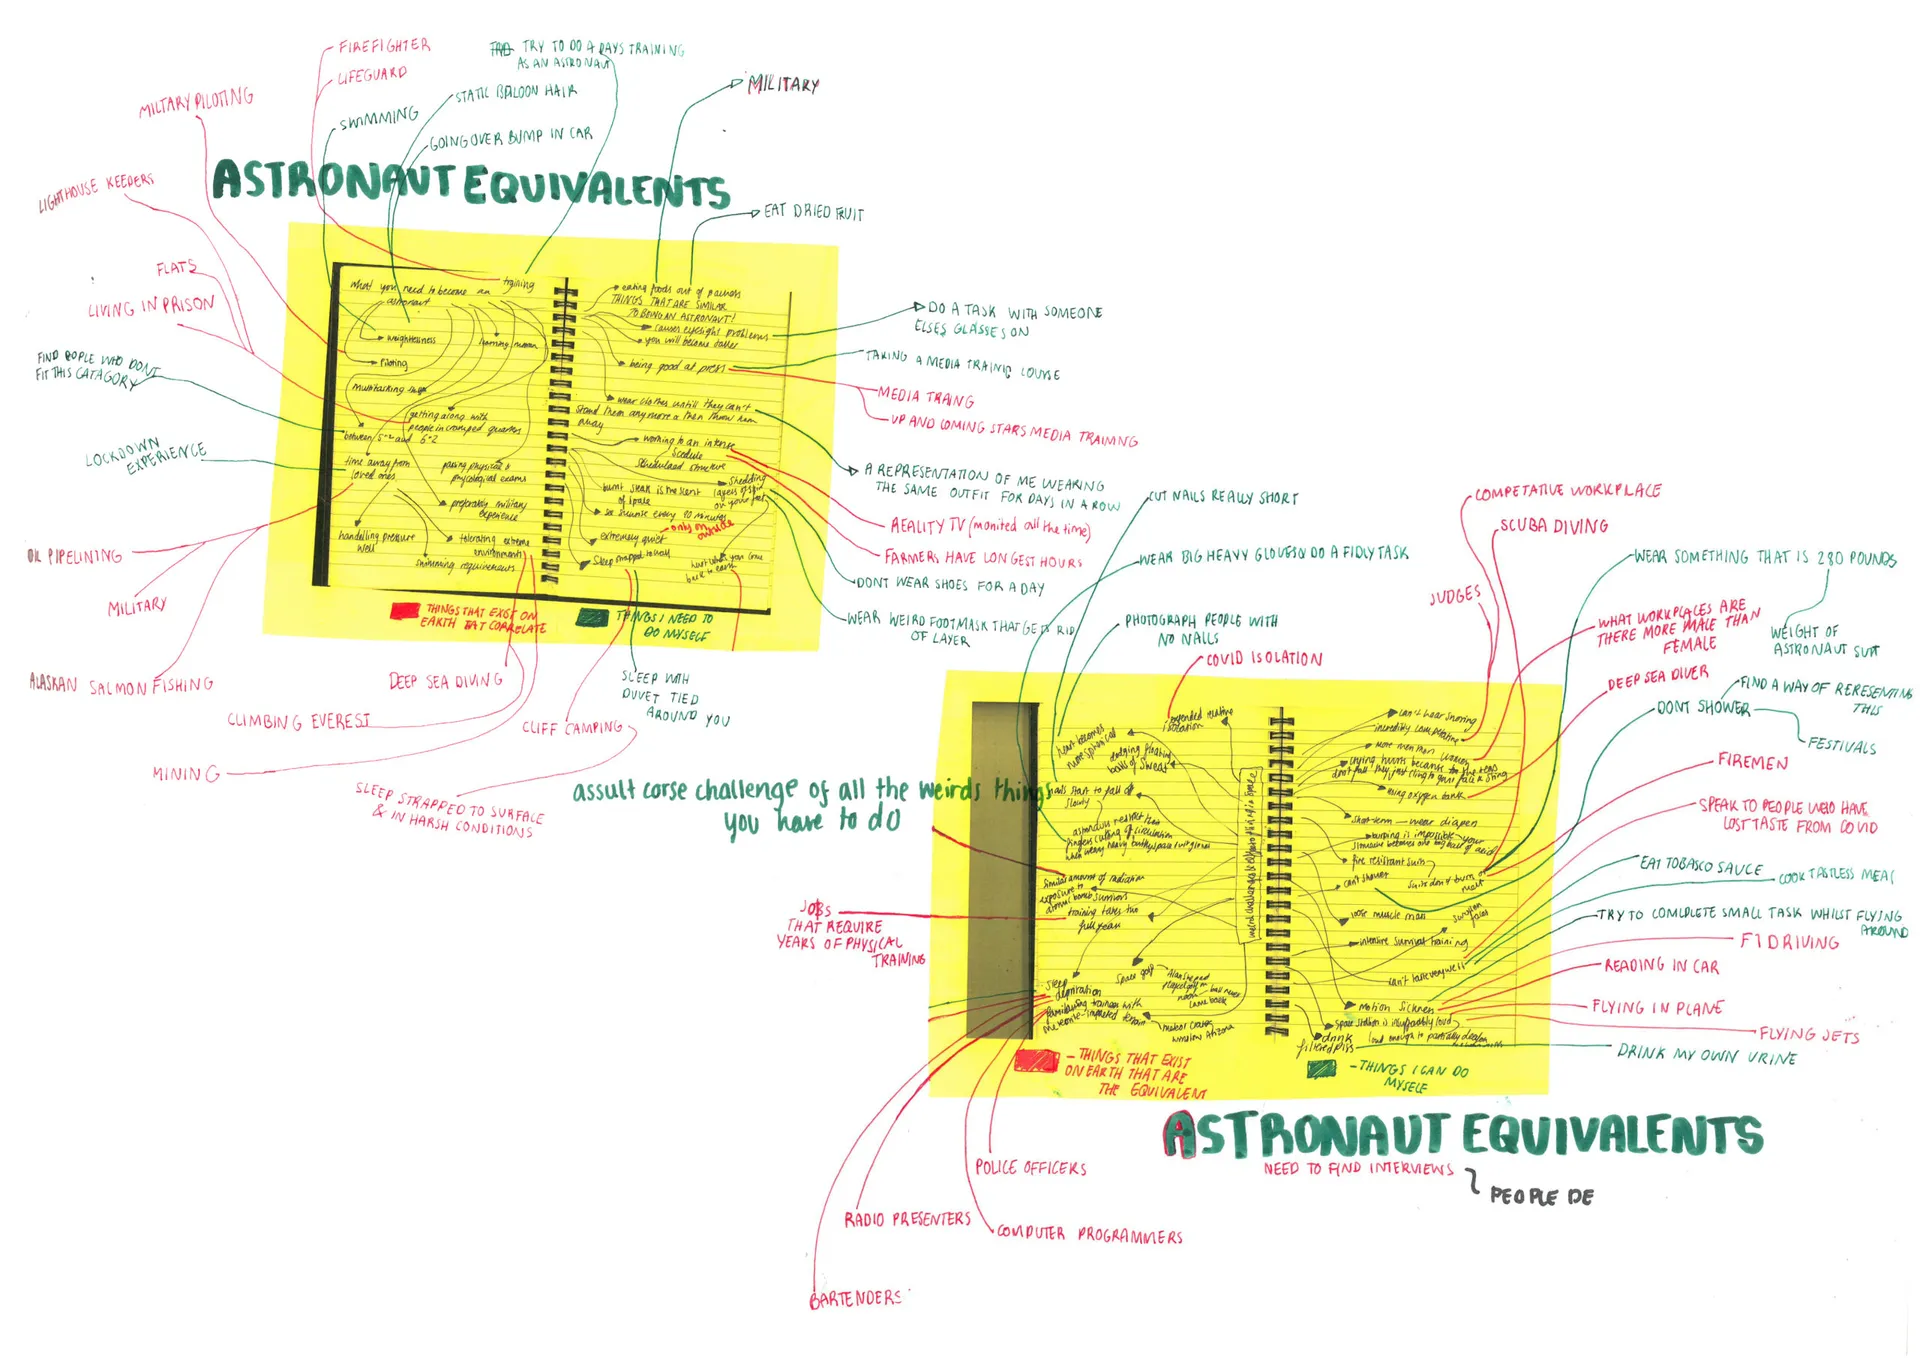 FIREFIGHTER
LIFEGUARD
TRD TRY TO DO A DAYS TRAINING
AS AN ASTRONAUT
MILITARY
MILTARY PILOTING
STATIC BALOON HAIR
SWIMMING
GOING OVER BUMP IN CAR
ASTRONAUT EQUIVALENTS
LIGHTHOUSE KEEPERS
EAT DRIED FRUIT
FLATS
LIVING IN PRISON
FIND POPLE WHO DONT
FIT THIS CATAGORY
LOCKDOWN
EXPERIENCE
OIL PIPELINING
MILITARY
ALASKAN SALMON FISHING
CLIMBING EVEREST
MINING
DEEP SEA DIVING
CLIFF CAMPING
SLEEP STRAPPED TO SURFACE
& IN HARSH CONDITIONS
SLEEP WITH
DUVET TIED
AROUND YOU
what you need to become an training
astronaut
weightlessness
piloting
multitasking
getting along with
people in cramped quarters
between 5"2 and 6"2
time away from
loved ones
passing physical &
phycological exams
preferably military
experience
handelling pressure
well
tolerating extreme
environments
swimming requirements
eating foods out of
THINGS THAT ARE SIMILAR
TO BEING AN ASTRONAUT!
causes eyesight problems
you will become taller
being good at press
wear clothes untill they can't
stand them anymore & then throw them
away
working to an intense
scedule
scheduled structure
burnt steak is the scent
of space
shedding
layers of skin
on your feet
see sunrise every 90 minutes
only on
outside
extremely quiet
sleep strapped to wall
hurt when you come
back to earth
THINGS THAT EXIST ON
EARTH TAT CORRELATE
THINGS I NEED TO
DO MYSELF
DO A TASK WITH SOMEONE
ELSES GLASSES ON
TAKING A MEDIA TRAINIG COURSE
MEDIA TRAING
UP AND COMING STARS MEDIA TRAINING
A REPRESENTATION OF ME WEARING
THE SAME OUTFIT FOR DAYS IN A ROW
REALITY TV (monited all the time)
FARMERS HAVE LONGEST HOURS
DONT WEAR SHOES FOR A DAY
WEAR WEIRD FOOTMASK THAT GETS RID
OF LAYER
CUT NAILS REALLY SHORT
WEAR BIG HEAVY GLOVES & DO A FIDLY TASK
PHOTOGRAPH PEOPLE WITH
NO NAILS
COVID ISOLATION
COMPETATIVE WORKPLACE
SCUBA DIVING
JUDGES
WEAR SOMETHING THAT IS 280 POUNDS
WEIGHT OF
ASTRONAUT SUIT
WHAT WORKPLACES ARE
THERE MORE MALE THAN
FEMALE
DEEP SEA DIVER
FIND A WAY OF RERESENTING
THIS
DONT SHOWER
FESTIVALS
FIREMEN
SPEAK TO PEOPLE WHO HAVE
LOST TASTE FROM COVID
EAT TOBASCO SAUCE
COOK TASTLESS MEAL
TRY TO COMLDLETE SMALL TASK WHILST FLYING
AROUND
F1 DRIVING
READING IN CAR
FLYING IN PLANE
FLYING JETS
DRINK MY OWN URINE
assult corse challenge of all the weirds things
you have to do
JOBS
THAT REQUIRE
YEARS OF PHYSICAL
TRAINING
extended relative
isolation
heart becomes
more spherical
dodging floating
balls of sweat
nails start to fall off
slowly
astronauts restrict their
fingers cutting of circulation
Similar amount of radiation
exposure to
atomic bomb survivors
training takes two
full years
sleep
depriration
space golf
Alan Shepard
played golf on
moon
ball never
came back
meteor crater
winslow Arizona
can't hear snoring
incredibly competative
more men than women
crying hurts because the tears
don't fall they just cling to your face & sting
using oxygen tank
short term - wear diapers
burping is impossible your
fire resistant suits
can't shower
suits don't burn or
melt
lose muscle mass
intensive survival training
can't taste very well
motion sickness
space station is insupportably loud
loud enough to partially deafen
drink
filtered piss
THINGS THAT EXIST
ON EARTH THAT ARE
THE EQUIVALENT
THINGS I CAN DO
MYSELF
ASTRONAUT EQUIVALENTS
NEED TO FIND INTERVIEWS
PEOPLE DE
POLICE OFFICERS
RADIO PRESENTERS
COMPUTER PROGRAMMERS
BARTENDERS